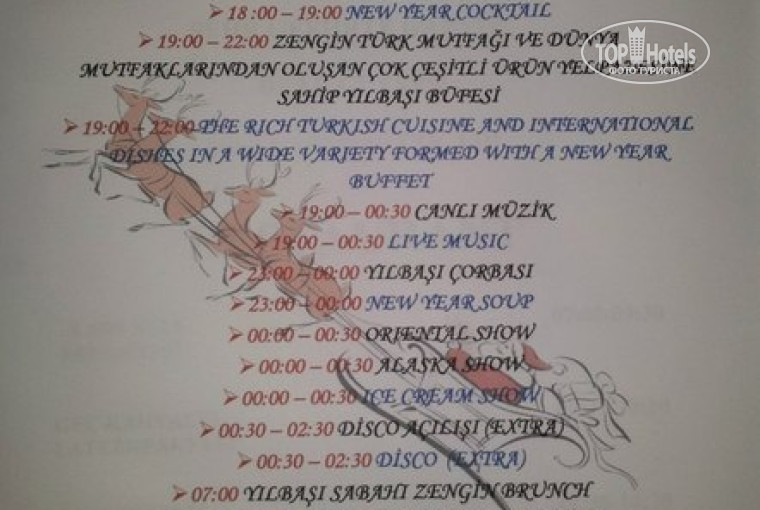 ➢ 18 :00 – 19:00 NEW YEAR COCKTAIL
➢ 19:00 – 22:00 ZENGİN TÜRK MUTFAĞI VE DÜNYA
MUTFAKLARINDAN OLUŞAN ÇOK ÇEŞİTLİ ÜRÜN
SAHİP YILBAŞI BÜFESİ
➢ 19:00 – 22:00 THE RICH TURKISH CUISINE AND INTERNATIONAL
DISHES IN A WIDE VARIETY FORMED WITH A NEW YEAR
BUFFET
➢ 19:00 – 00:30 CANLI MÜZİK
➢ 19:00 – 00:30 LIVE MUSIC
➢ 23:00 – 00:00 YILBAŞI ÇORBASI
➢ 23:00 – 00:00 NEW YEAR SOUP
➢ 00:00 – 00:30 ORIENTAL SHOW
➢ 00:00 – 00:30 ALASKA SHOW
➢ 00:00 – 00:30 ICE CREAM SHOW
➢ 00:30 – 02:30 DİSCO AÇILIŞI (EXTRA)
➢ 00:30 – 02:30 DİSCO (EXTRA)
➢ 07:00 YILBAŞI SABAHI ZENGİN BRUNCH
TOP Hotels
ФОТО ТУРИСТА